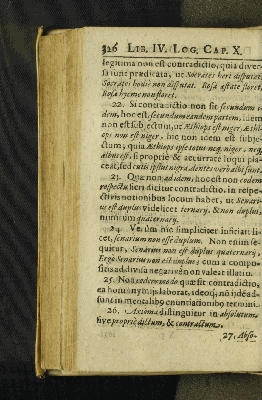 326 LIB. IV. LOG. CAP. X.
legitima non est contradictio, quia diver-
sa sunt prædicata; ut Socrates heri disputat,
Socrates hodie non disputat. Rosa æstate floret,
Rosa hyeme non floret.
22. Si contradictio non fit secundum i-
dem, hoc est, secundum eandem partem, idem
non est subjectum, ut Æthiops est niger, Æthi-
ops non est niger, hic non idem est subje-
ctum; quia Æthiops ipse totus neq. niger, neq.
albus est, si propriè & accuratè loqui pla-
ceat, sed cutis ipsius nigra dentes verò albi sunt.
23. Quæ non ad idem, hoc est non eodem
respectu fieri dicitur contradictio, in respe-
ctivis notionibus locum habet, ut Senari-
us est duplus videlicet ternarij, & non duplus,
nimirum quaternarij.
24. Verùm hîc simpliciter inficiari li-
cet, senarium non esse duplum. Non enim se-
quitur, Senarius non est duplus quaternarij,
Ergò Senarius non est duplus; cum à compo-
sitis ad divisa negativè non valeat illatio.
25. Non eodem modo quæ sit contradictio,
ea homonymiis laborat, ideoq́; nō ijdē ad-
sunt in mentalibo enuntiationibo termini.
26. Axioma distinguitur in absolutum,
sive propriè dictum, & contractum.
27. Abso-